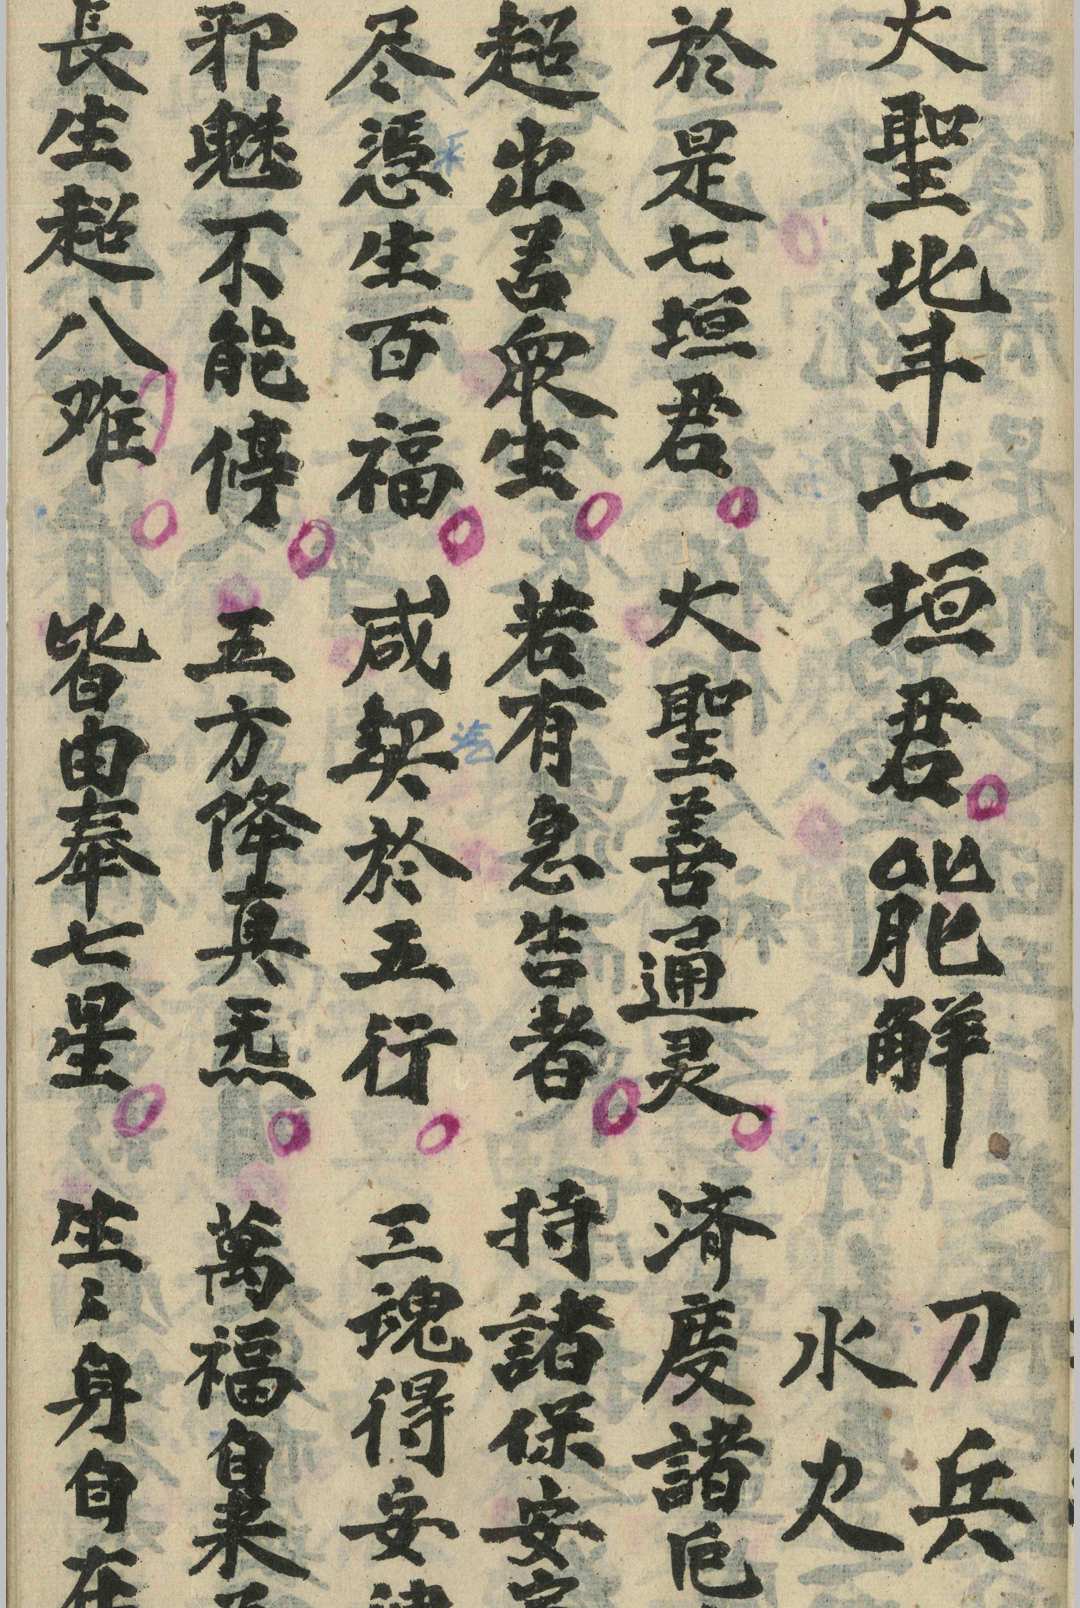 大聖北斗七垣君能解
刀兵
水火
於是七垣君大聖善通灵済度諸厄
超出善衆生若有急告者持諸保安
尽凴生百福咸契於五行三魂得安
邪魅不能停五方降真炁萬福自来
長生超八难皆由奉七星生〻身自在